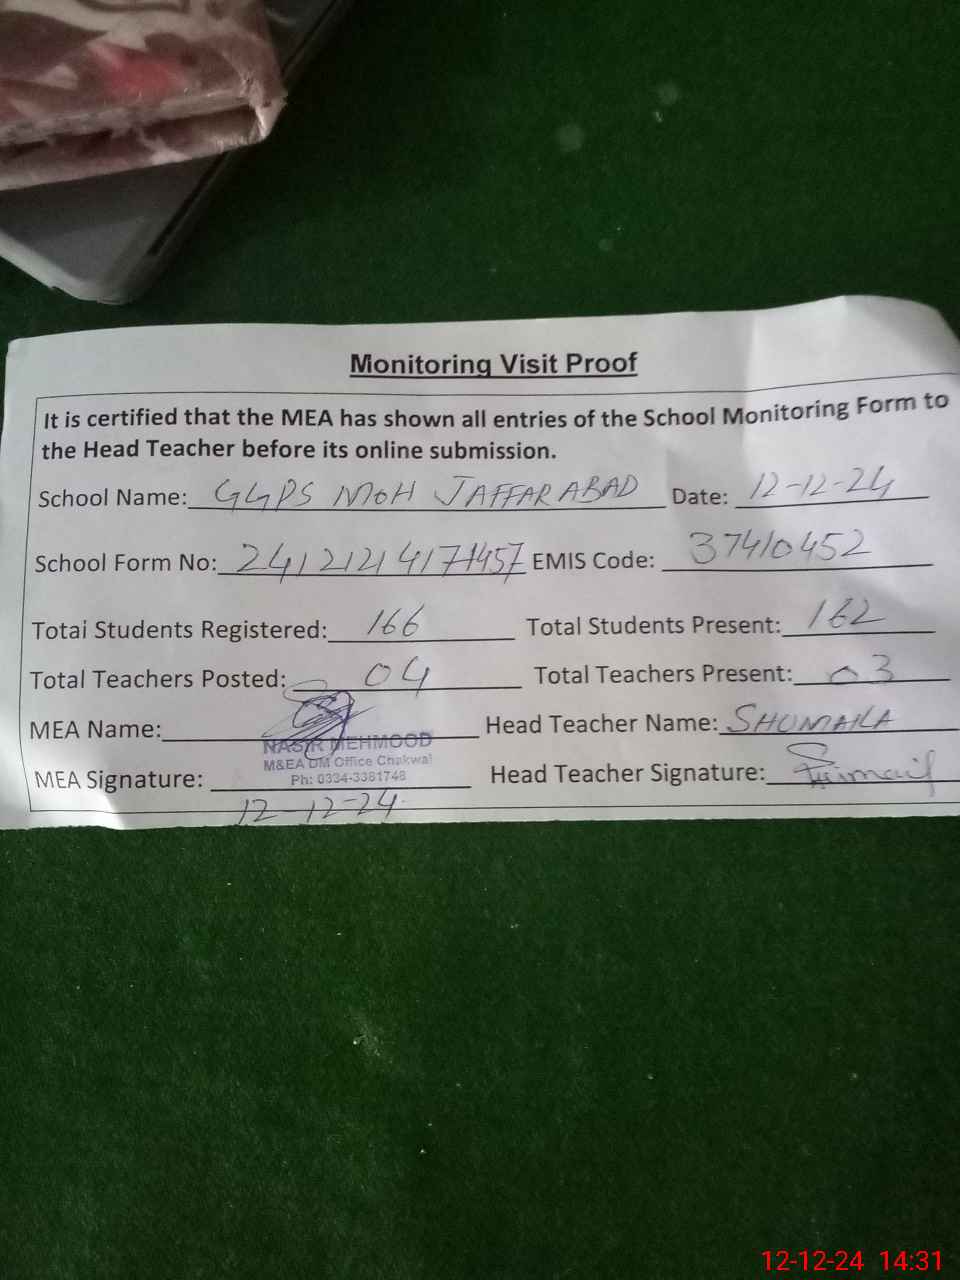 Monitoring Visit Proof
It is certified that the MEA has shown all entries of the School Monitoring Form to
the Head Teacher before its online submission.
School Name: GGPS MOH JAFFARABAD Date: 12-12-24
School Form No: EMIS Code: 37410452
Total Students Registered: 166 Total Students Present: 162
Total Teachers Posted: 04 Total Teachers Present: 03
MEA Name: Head Teacher Name: SHUMAILA
NASIR MEHMOOD
M&EA DM Office Chakwal
MEA Signature: Ph: 0334-3381748 Head Teacher Signature:
12-12-24
12-12-24 14:31